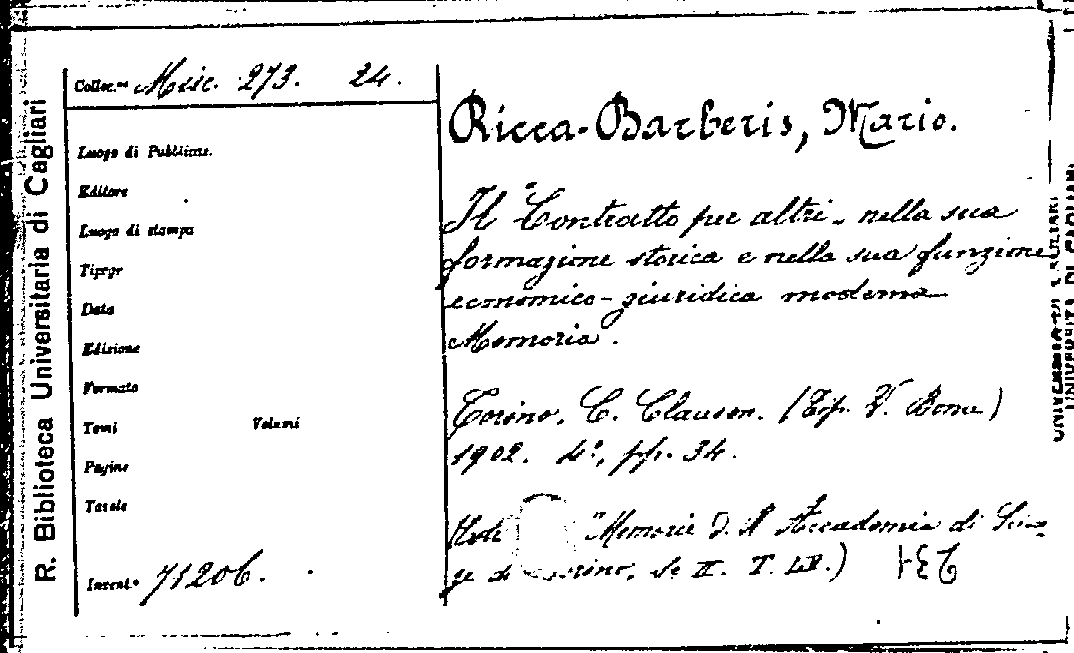 R. Biblioteca Universitaria di Cagliari
Colloc.ne Misc. 273. 24.
Luogo di Pubblicne.
Editore
Luogo di stampa
Tipgr
Data
Edizione
Formato
Tomi Volumi
Pagine
Tavole
Invent.o 71206.
Ricca-Barberis, Mario.
Il "Contratto per altri" nella sua
formazione storica e nella sua funzione
economico-giuridica moderna
Memoria.
Torino, C. Clausen. (Tip. V. Bona)
1902. 4°, pp. 34.
"Memorie d. R. Accademia di Scien-
ze di Torino, Se II. T. LII.)
UNIVERSITÀ DI CAGLIARI